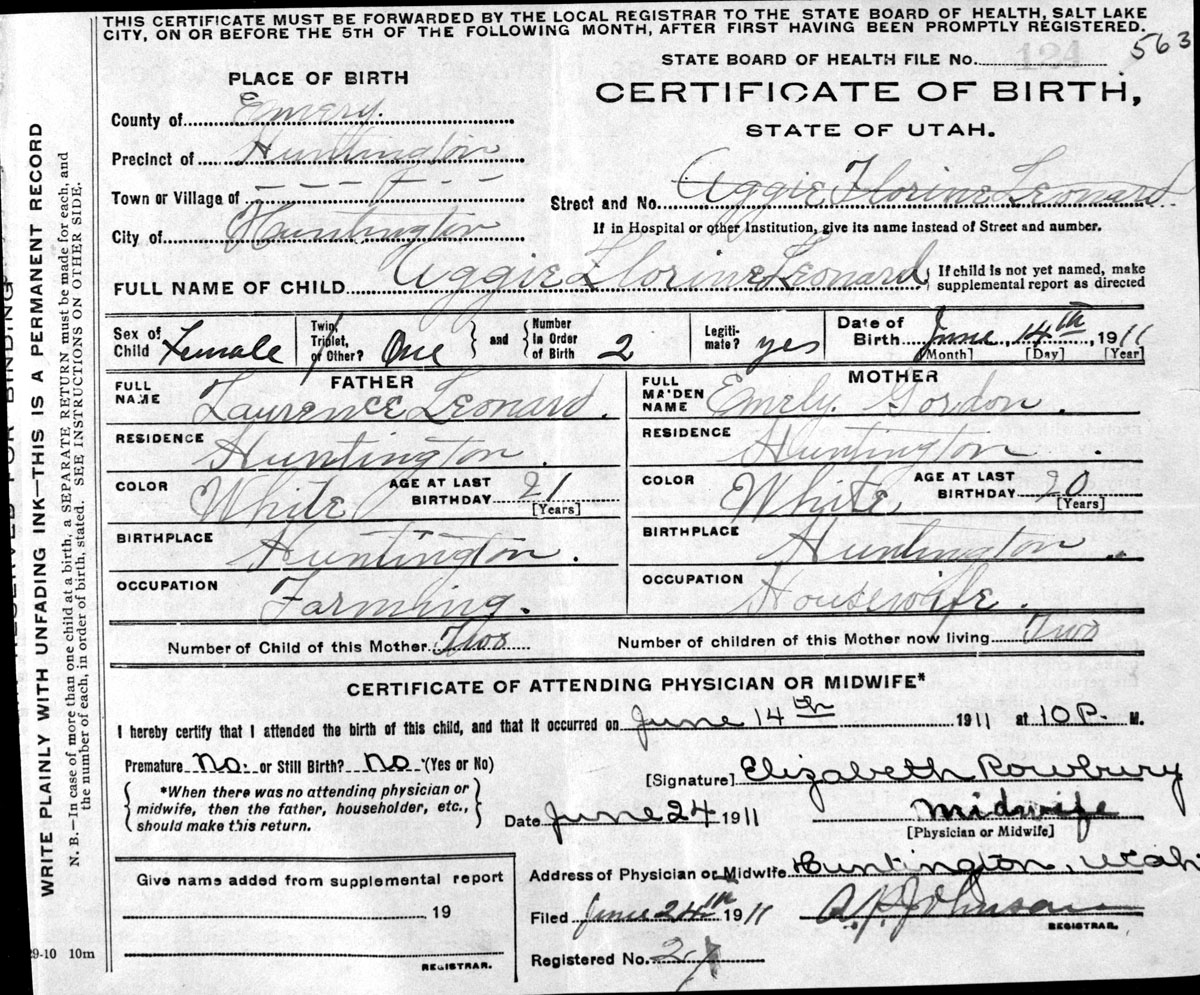 THIS CERTIFICATE MUST BE FORWARDED BY THE LOCAL REGISTRAR TO THE STATE BOARD OF HEALTH, SALT LAKE
CITY, ON OR BEFORE THE 5TH OF THE FOLLOWING MONTH, AFTER FIRST HAVING BEEN PROMPTLY REGISTERED.
563
STATE BOARD OF HEALTH FILE No. 134
PLACE OF BIRTH
CERTIFICATE OF BIRTH,
STATE OF UTAH.
County of Emery.
Precinct of Huntington
Town or Village of
Street and No. Aggie Florine Leonard
City of Huntington
If in Hospital or other Institution, give its name instead of Street and number.
FULL NAME OF CHILD Aggie Florine Leonard
If child is not yet named, make
supplemental report as directed
Sex of Child Female
Twin, Triplet, or Other? One
and
Number In Order of Birth 2
Legiti- mate? yes
Date of Birth June 14th, 1911
[Month] [Day] [Year]
FATHER
MOTHER
FULL NAME Laurence Leonard.
FULL MAIDEN NAME Emely. Gordon.
RESIDENCE Huntington.
RESIDENCE Huntington.
COLOR White AGE AT LAST BIRTHDAY 21 [Years]
COLOR White AGE AT LAST BIRTHDAY 20 [Years]
BIRTHPLACE Huntington.
BIRTHPLACE Huntington
OCCUPATION Farming.
OCCUPATION Housewife.
Number of Child of this Mother Two
Number of children of this Mother now living Two
CERTIFICATE OF ATTENDING PHYSICIAN OR MIDWIFE*
I hereby certify that I attended the birth of this child, and that it occurred on June 14th 1911 at 10 P. M.
Premature No. or Still Birth? No (Yes or No)
[Signature] Elizabeth Rowbury
*When there was no attending physician or
midwife, then the father, householder, etc.,
should make this return.
Date June 24 1911
midwife
[Physician or Midwife]
Address of Physician or Midwife Huntington, Utah
Give name added from supplemental report
19
REGISTRAR.
Filed June 24th 1911
A.P. Johnson
REGISTRAR.
Registered No. 27
29-10 10m
RESERVED FOR BINDING
WRITE PLAINLY WITH UNFADING INK—THIS IS A PERMANENT RECORD
N. B.—In case of more than one child at a birth, a SEPARATE RETURN must be made for each, and
the number of each, in order of birth, stated. SEE INSTRUCTIONS ON OTHER SIDE.